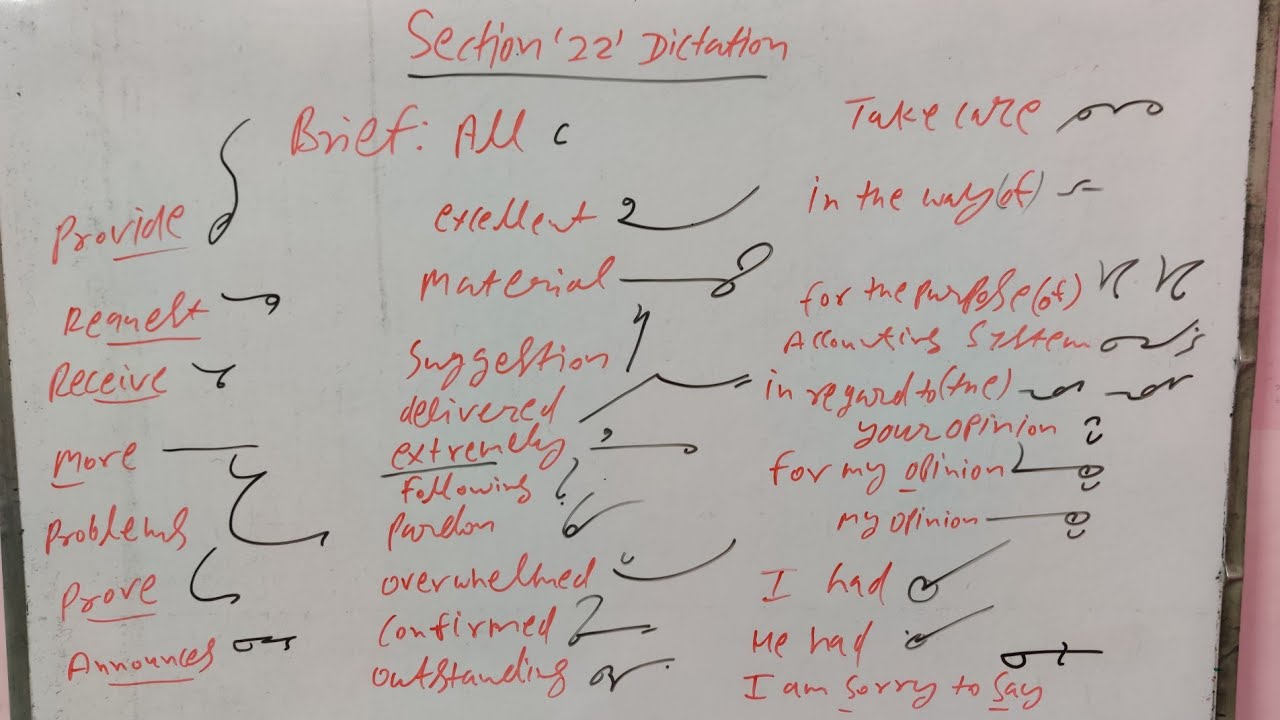 Section '22' Dictation
Brief: All
Provide
Request
Receive
More
Problems
Prove
Announces
excellent
material
Suggestion
delivered
extremely
following
pardon
overwhelmed
Confirmed
outstanding
Take care
in the way(of)
for the purpose(of)
Accounting System
in regard to(the)
your opinion
for my opinion
my opinion
I had
He had
I am sorry to say